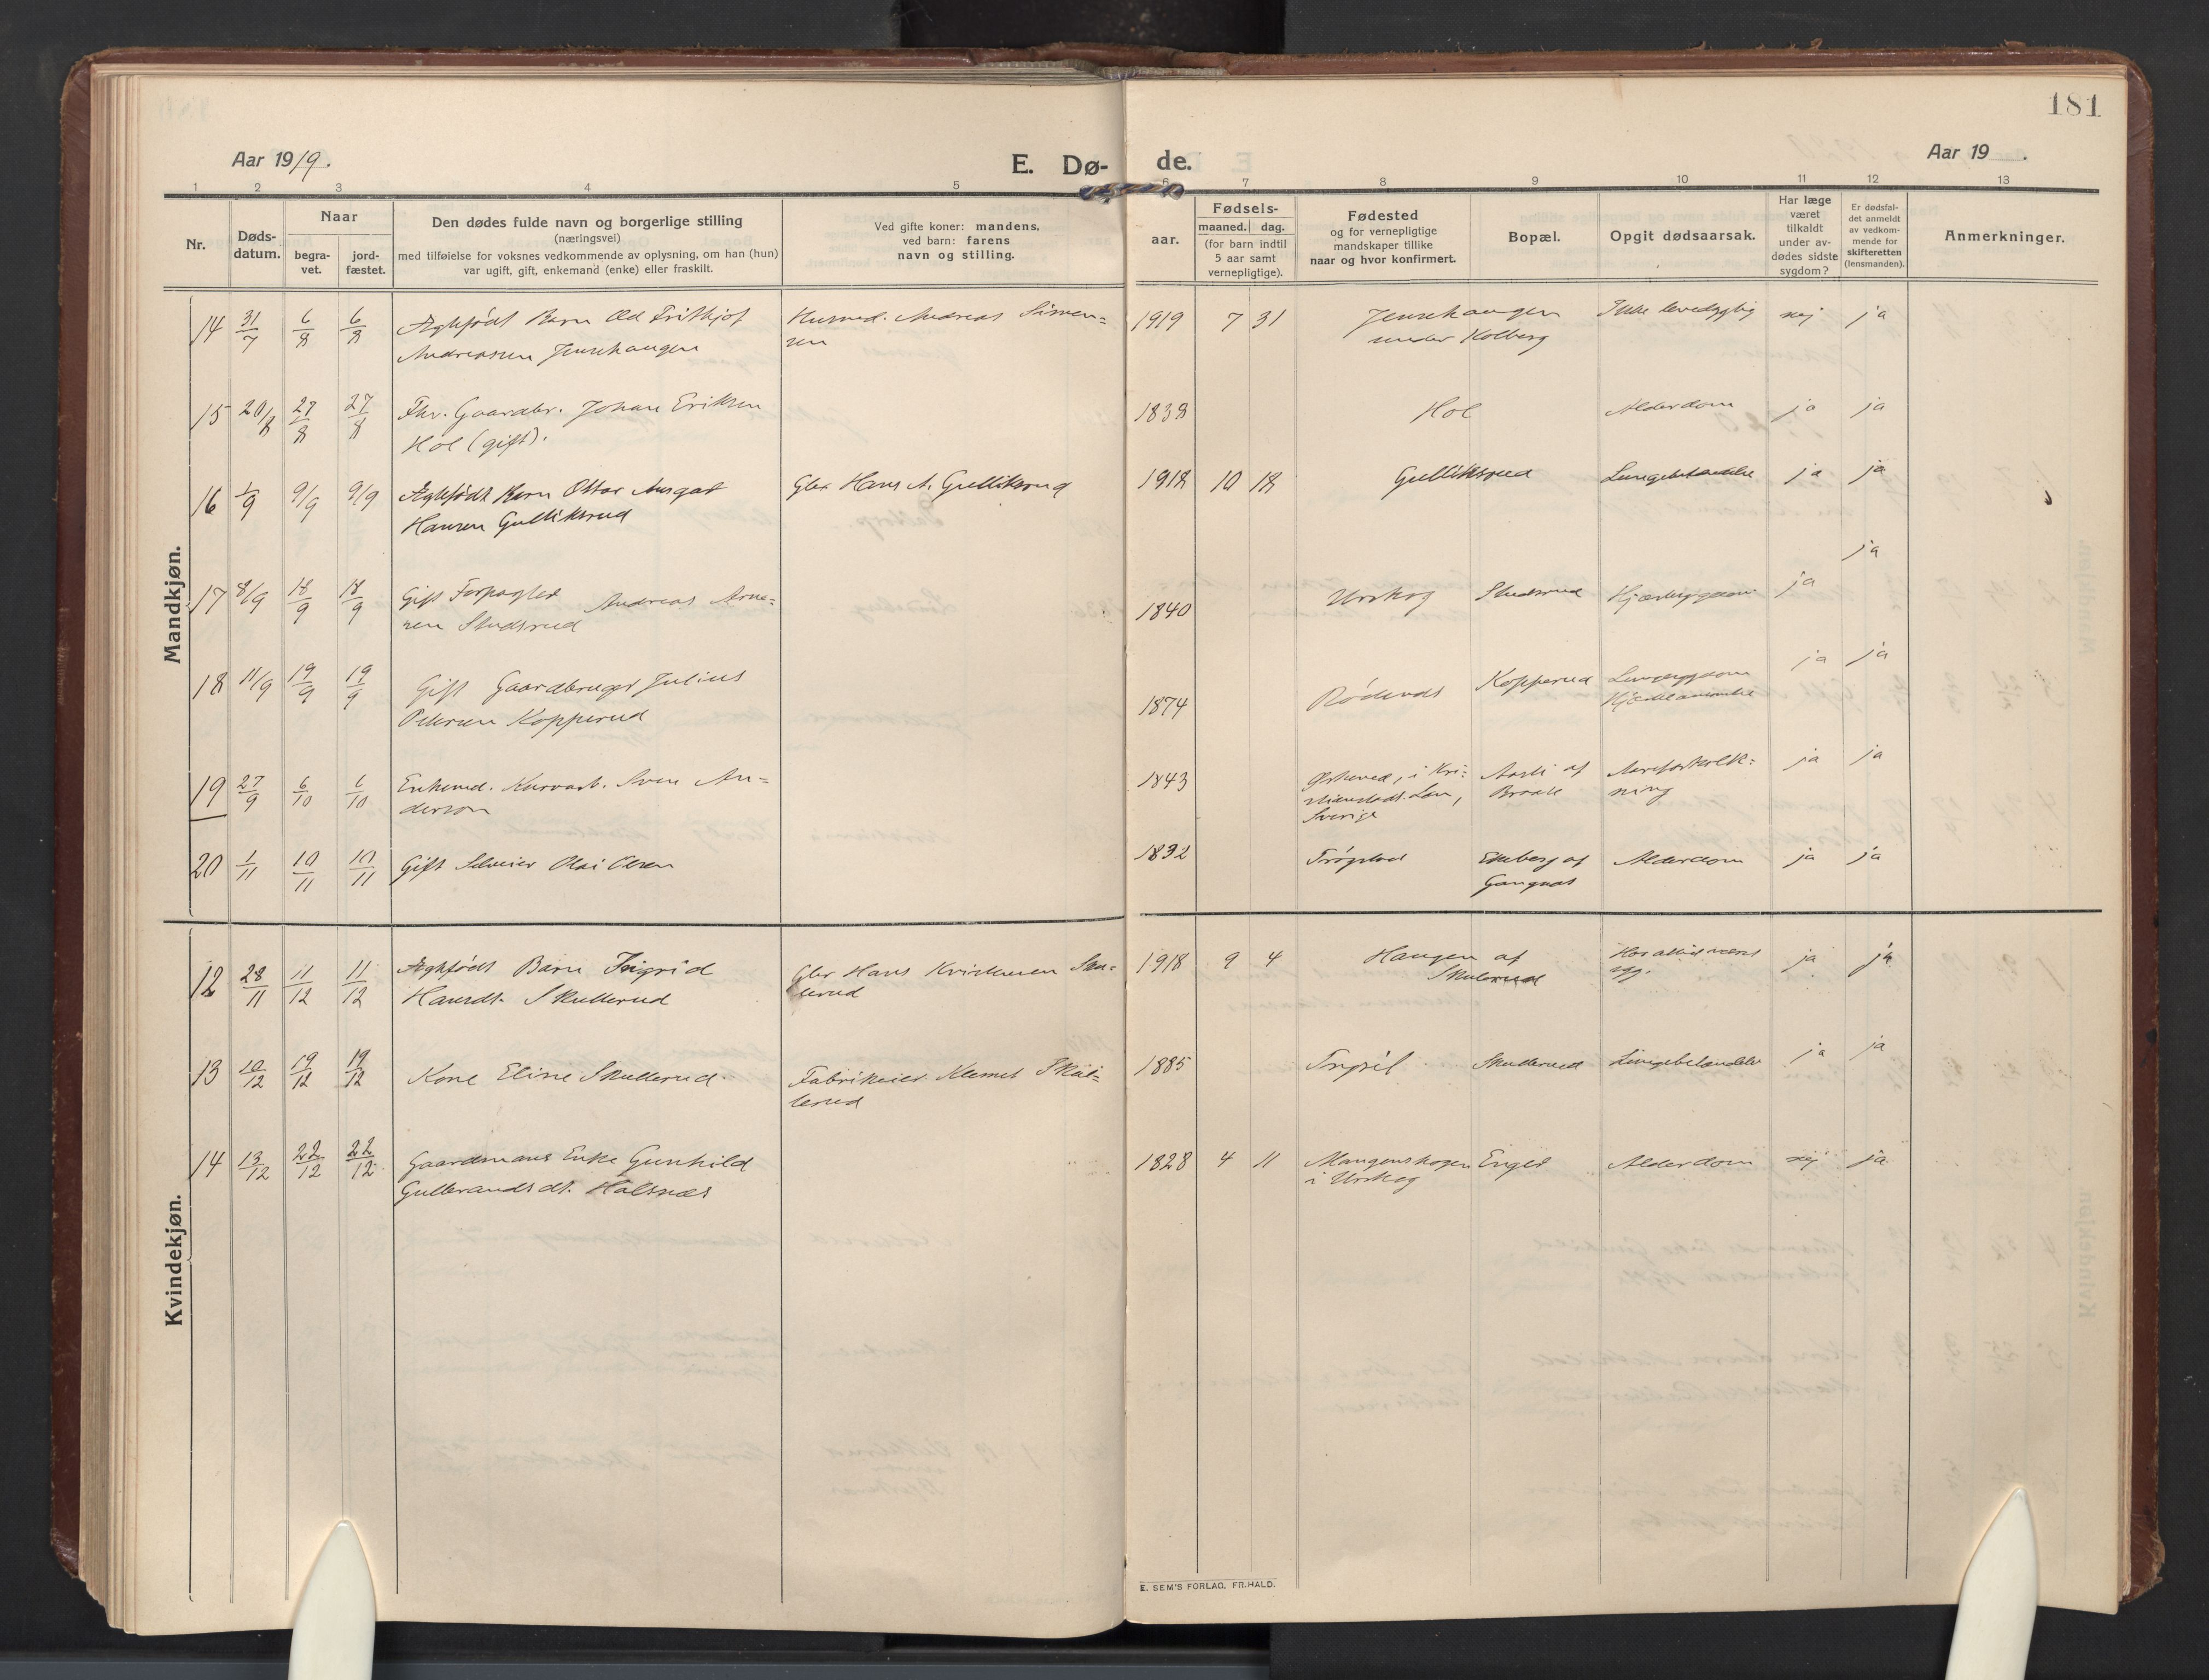 181
Aar 1919.
E. Dø-
de.
Aar 19 .
1 2 3 4 5 6 7 8 9 10 11 12 13
Nr.
Døds-
datum.
Naar
begra-
vet.
jord-
fæstet.
Den dødes fulde navn og borgerlige stilling
(næringsvei)
med tilføielse for voksnes vedkommende av oplysning, om han (hun)
var ugift, gift, enkemand (enke) eller fraskilt.
Ved gifte koner: mandens,
ved barn: farens
navn og stilling.
aar.
Fødsels-
maaned. dag.
(for barn indtil
5 aar samt
vernepligtige).
Fødested
og for vernepligtige
mandskaper tillike
naar og hvor konfirmert.
Bopæl.
Opgit dødsaarsak.
Har læge
været
tilkaldt
under av-
dødes sidste
sygdom?
Er dødsfal-
det anmeldt
av vedkom-
mende for
skifteretten
(lensmanden).
Anmerkninger.
Mandkjøn.
14 31/7 6/8 6/8 Ægtefødt Barn Odd Fritkjof Husmd. Andreas Simen= 1919 7 31 Jensehaugen Ikke levedygtig nej ja
Andreassen Jensehaugen sen under Kolberg
15 20/8 27/8 27/8 Fhv. Gaardbr. Johan Eriksen 1838 Hol Alderdom ja ja
Hol (gift).
16 1/9 9/9 9/9 Ægtefødt Barn Ottar Ansgar Gbr Hans A. Gulliksrud 1918 10 18 Gulliksrud Lungebetændelse ja ja
Hansen Gulliksrud
17 8/9 18/9 18/9 Gift Forpagter Andreas Arne= 1840 Urskog Studsrud ja ja
sen Studsrud
18 11/9 19/9 19/9 Gift Gaardbruger Julius 1874 Rødenes Kopperud ja ja
Petersen Kopperud
19 27/9 6/10 6/10 Enkemd. Kurvarb. Sven An= 1843 i Kri= af Aareforkalk= ja ja
derson stianstads Län, Braate ning
Sverige
20 1/11 10/11 10/11 Gift Selveier Olai Olsen 1832 Trøgstad Ekeberg af Alderdom ja ja
Gangnæs
Kvindekjøn.
12 28/11 11/12 11/12 Ægtefødt Barn Ingrid Gbr Hans Kristiansen Sku= 1918 9 4 Haugen af Har altid været ja ja
Hansdt. Skullerud llerud Skulerud syg.
13 10/12 19/12 19/12 Kone Eline Skullerud. Fabrikeier Klemet Skul= 1885 Trysil Skullerud Lungebetændelse ja ja
lerud
14 13/12 22/12 22/12 Gaardmans Enke Gunhild 1828 4 11 Mangenskogen Enger Alderdom nej ja
Gulbrandsdt. Halsnæs i Urskog
E. SEM'S FORLAG, FR.HALD.